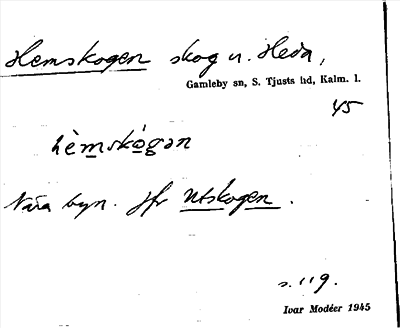 Hemskogen skog u. Heda,
Gamleby sn, S. Tjusts hd, Kalm. l.
45
hèmskógən
Nära byn. Jfr Utskogen.
s. 119.
Ivar Modéer 1945